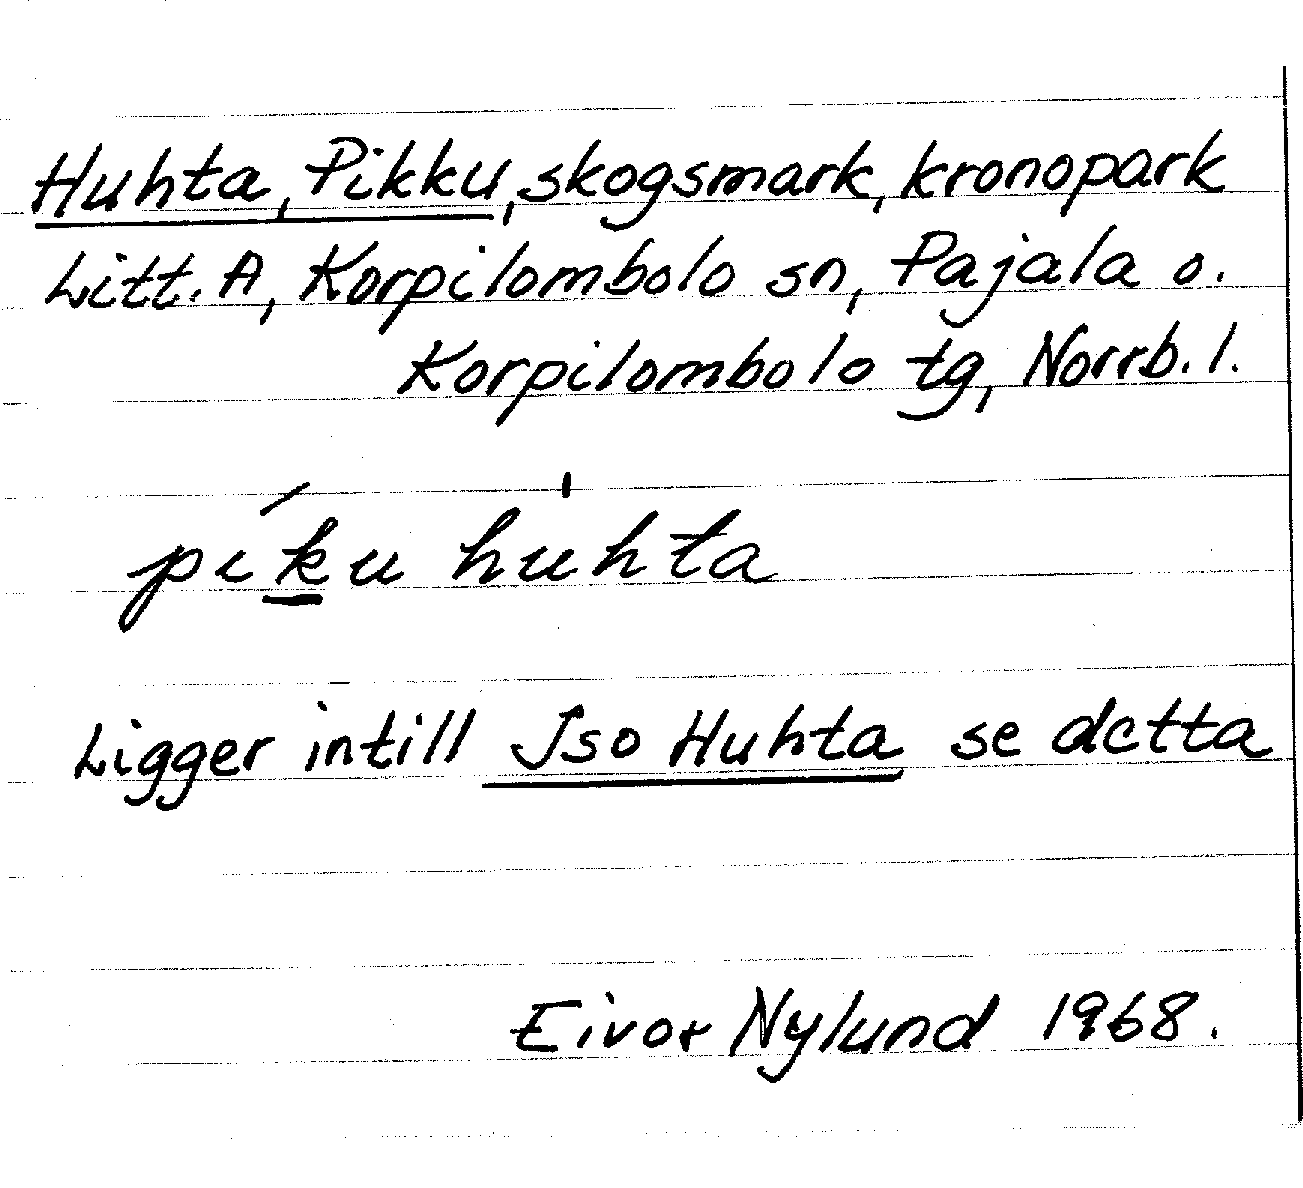 Huhta, Pikku, skogsmark, kronopark
Litt. A, Korpilombolo sn, Pajala o.
Korpilombolo tg, Norrb. l.
piku huhta
Ligger intill Iso Huhta se detta
Eivor Nylund 1968.